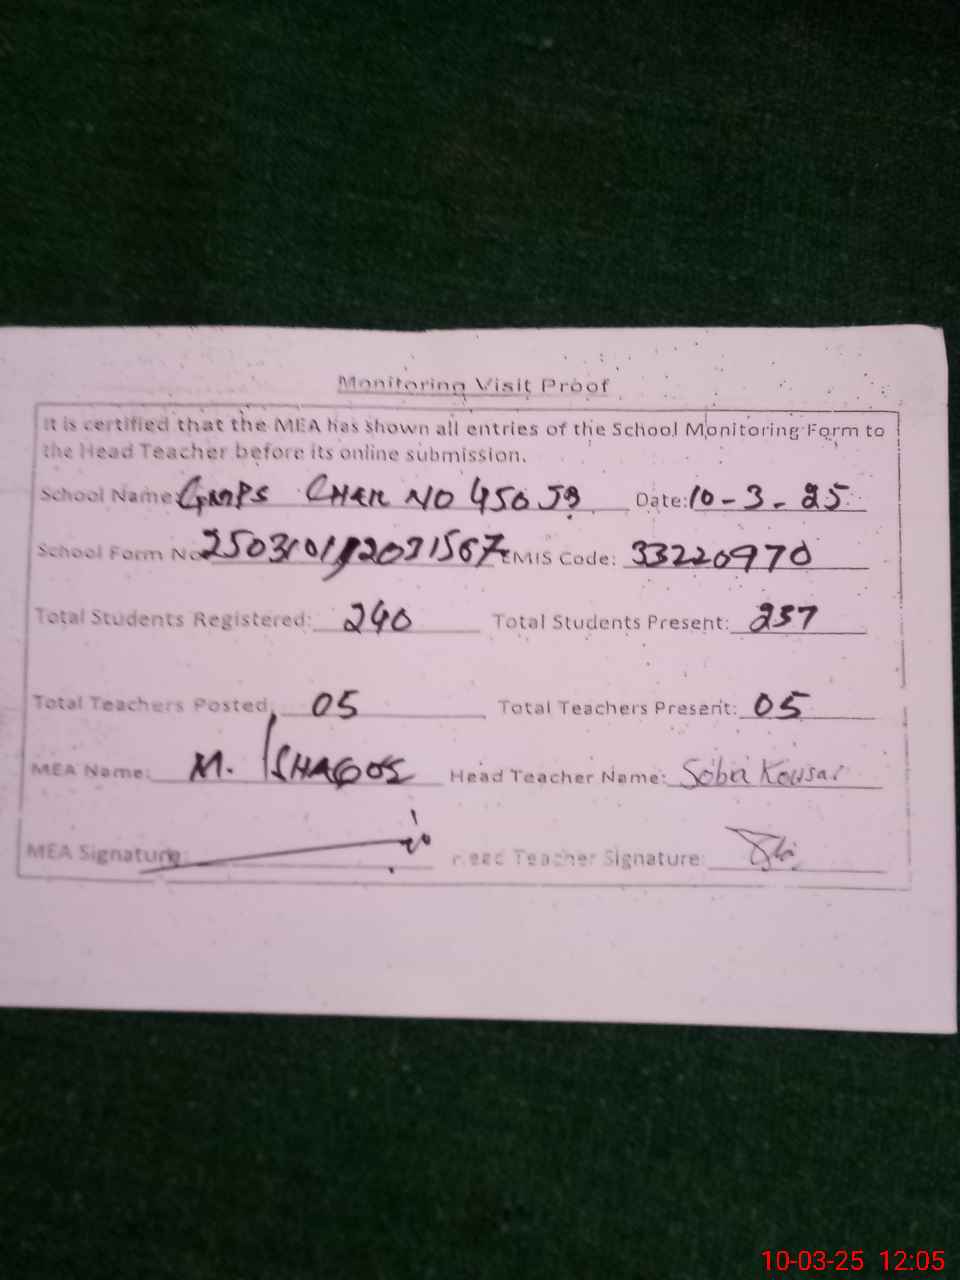 Monitoring Visit Proof
It is certified that the MEA has shown all entries of the School Monitoring Form to
the Head Teacher before its online submission.
School Name: GMPS CHAK NO 450 JB Date: 10-3-25
School Form No EMIS Code: 33220970
Total Students Registered: 240 Total Students Present: 237
Total Teachers Posted: 05 Total Teachers Present: 05
MEA Name: M. Head Teacher Name: Soba Kousar
MEA Signature: Head Teacher Signature:
10-03-25 12:05